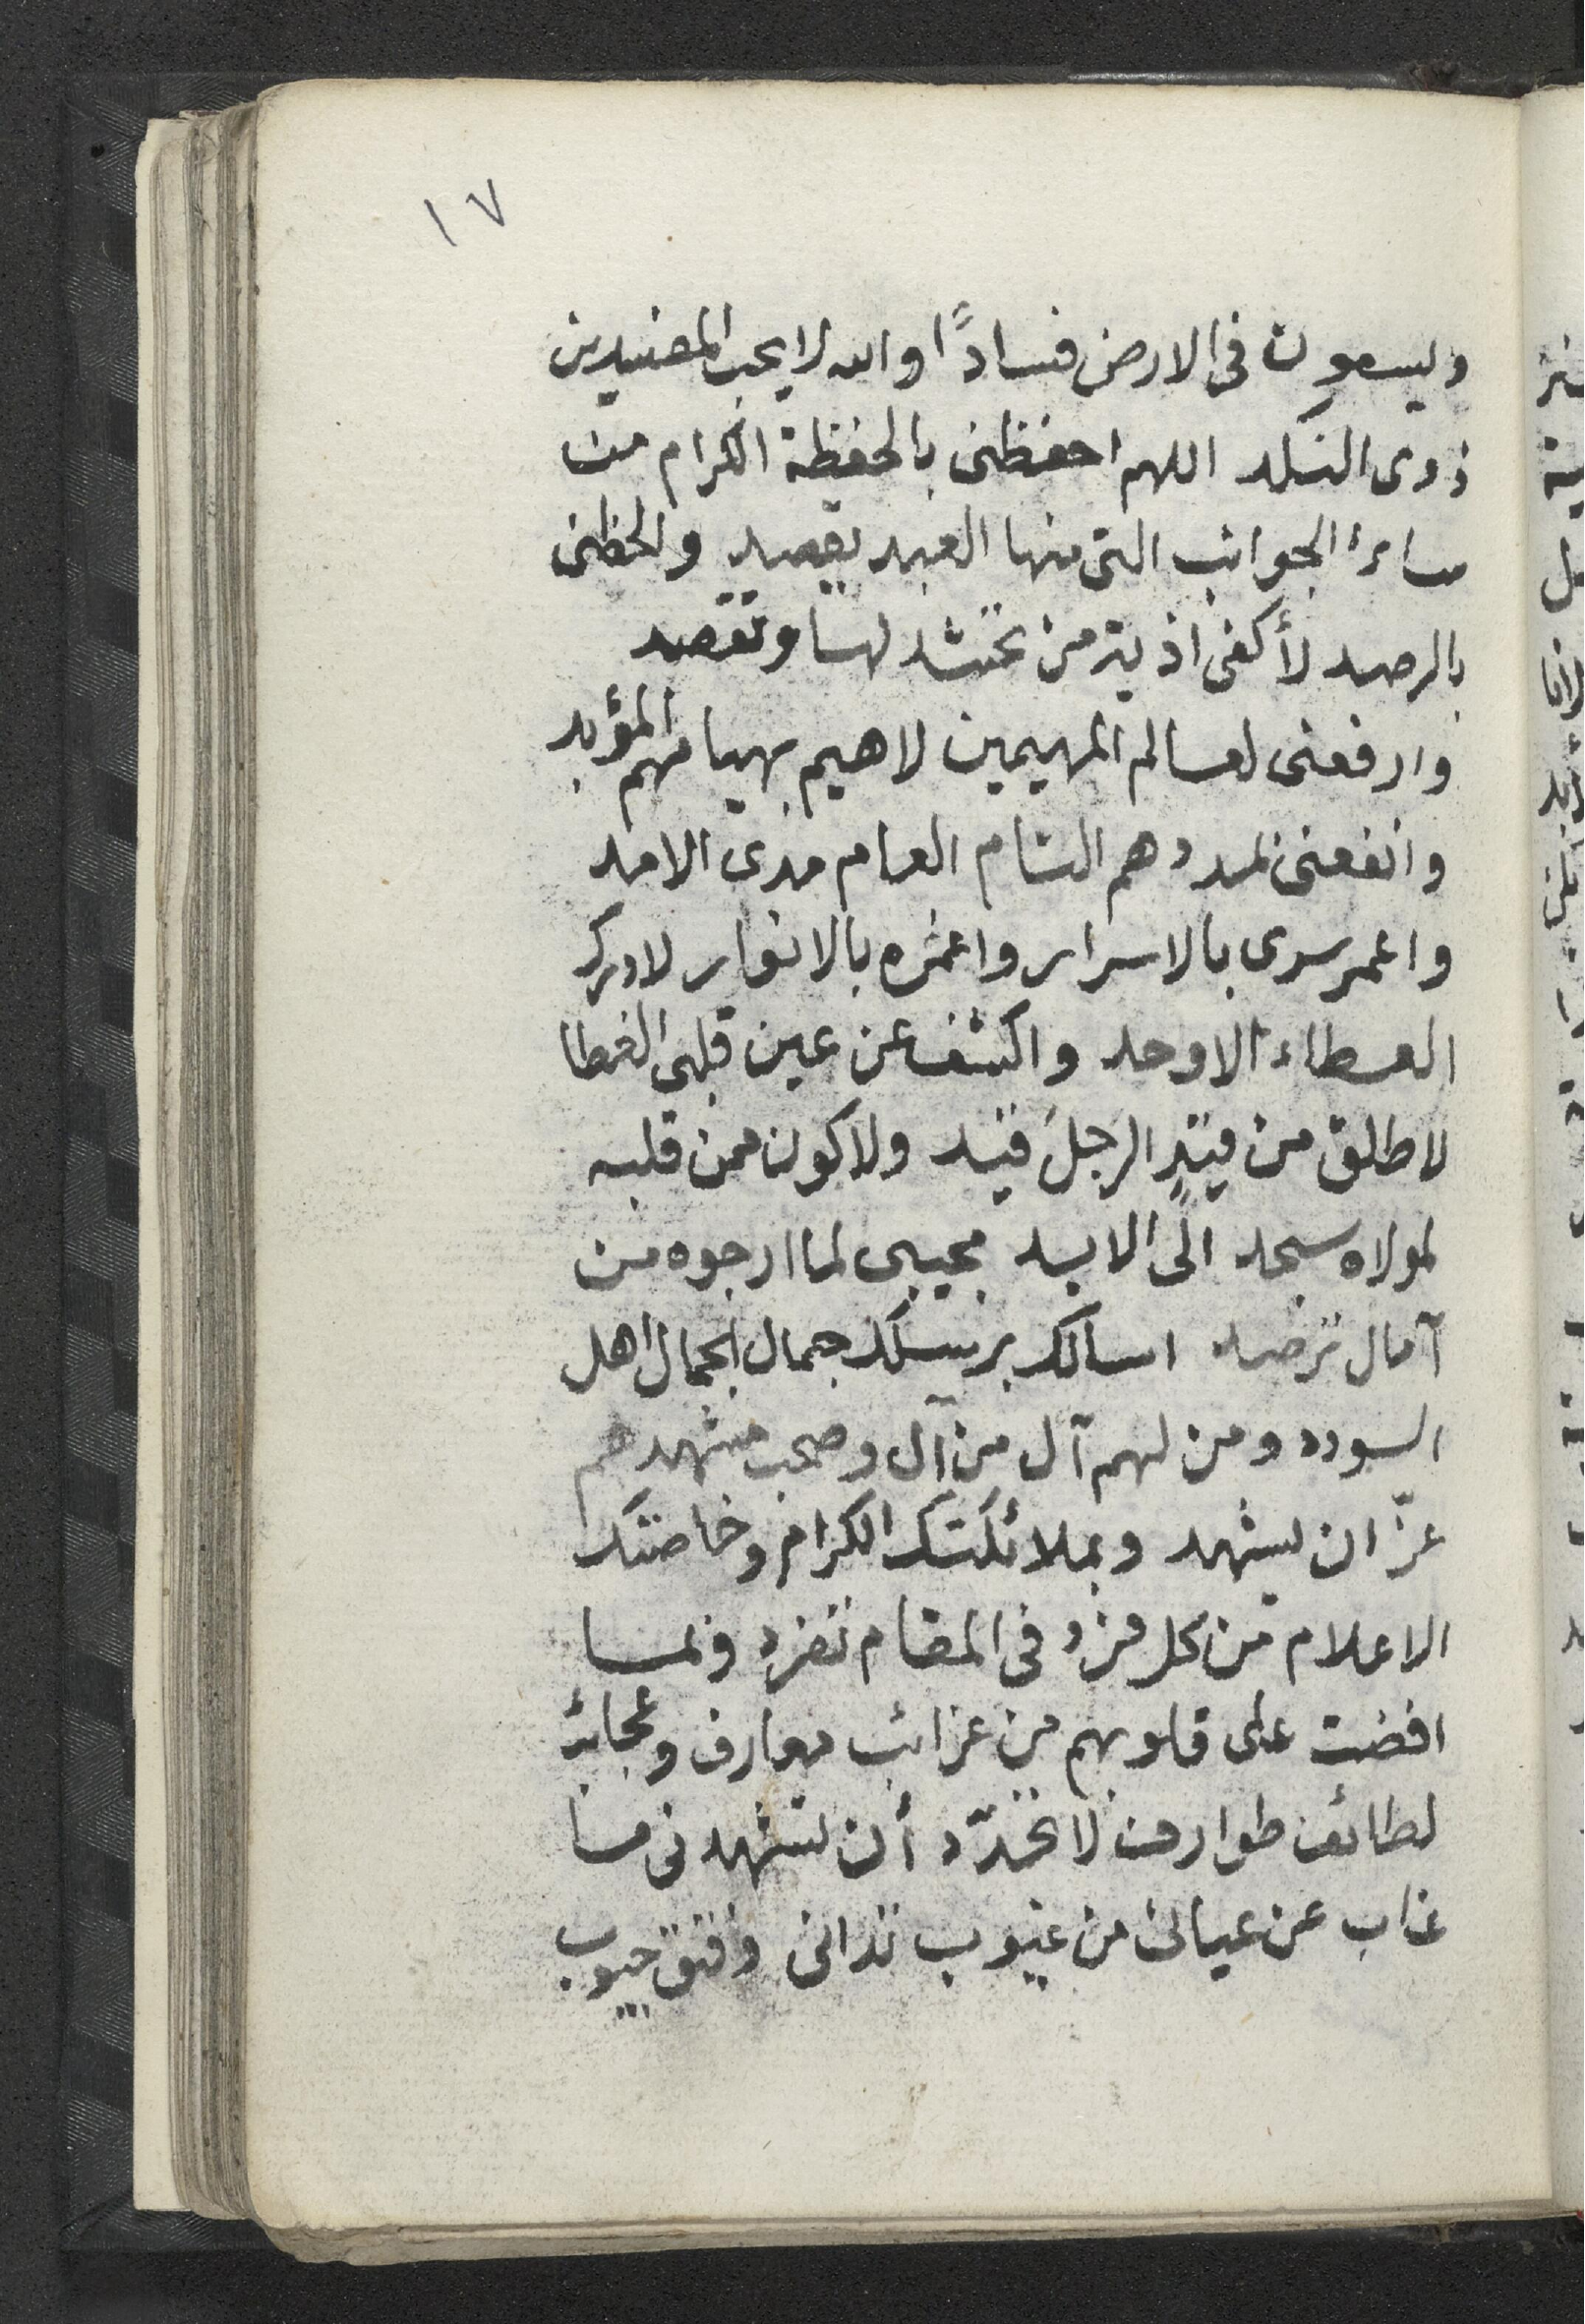 ١٧
ويسعون فى الارض فسادًا والله لا يحب المفسدين
ذوى النكد اللهم احفظنى بالحفظة الكرام من
سائر الجوانب التى منها العبد يقصد والحظنى
بالرصد لأكفى اذية من تحتشد لها وتقصد
وارفعنى لعالم المهيمين لاهيم بهيامهم المؤبد
وانفعنى بمددهم التام العام مدى الامد
واعمر سرى بالاسرار واغمره بالانوار لادرك
العطاء الاوحد واكشف عن عين قلبى الغطا
لاطلق من قيدٍ الرجل قيد ولاكون ممن قلبه
لمولاه سجد الى الابد مجيبى لما ارجوه من
آمال ترصد اسالك برسلك جمال الجمال اهل
السودد ومن لهم آل من آل وصحب مشهدهم
عزّ ان يشهد وبملائكتك الكرام وخاصتك
الاعلام من كل فرد فى المقام تفرد وبما
افضت على قلوبهم من غرائب معارف وعجائب
لطائف طوارف لا تحدّد أن تشهدنى ما
غاب عن عيانى من غيوب تدانى وفتق جيوب